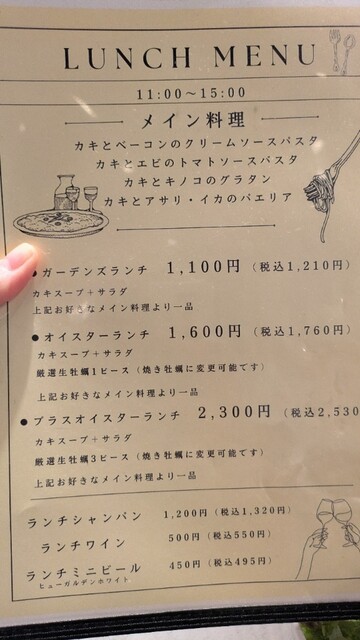 LUNCH MENU
11:00～15:00
メイン料理
カキとベーコンのクリームソースパスタ
カキとエビのトマトソースパスタ
カキとキノコのグラタン
カキとアサリ・イカのパエリア
●ガーデンズランチ 1,100円（税込1,210円）
カキスープ＋サラダ
上記お好きなメイン料理より一品
●オイスターランチ 1,600円（税込1,760円）
カキスープ＋サラダ
厳選生牡蠣1ピース（焼き牡蠣に変更可能です）
上記お好きなメイン料理より一品
●プラスオイスターランチ 2,300円（税込2,530
カキスープ＋サラダ
厳選生牡蠣3ピース（焼き牡蠣に変更可能です）
上記お好きなメイン料理より一品
ランチシャンパン 1,200円（税込1,320円）
ランチワイン 500円（税込550円）
ランチミニビール 450円（税込495円）
ヒューガルデンホワイト